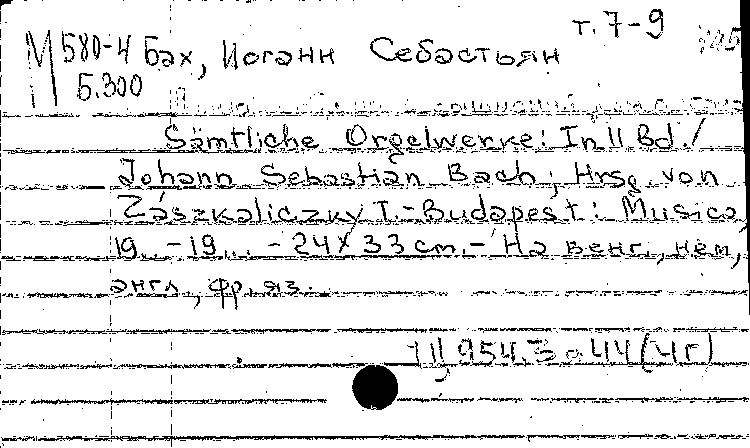 т. 7-9
М 580-4 Бах, Иоганн Себастьян
5.300
Sämtliche Orgelwerke: In 11 Bd. /
Johann Sebastian Bach; Hrsg. von
Zászkaliczky T. - Budapest: Musica,
19.. - 19... - 24 x 33 cm. - На венг., нем.,
англ., фр. яз.